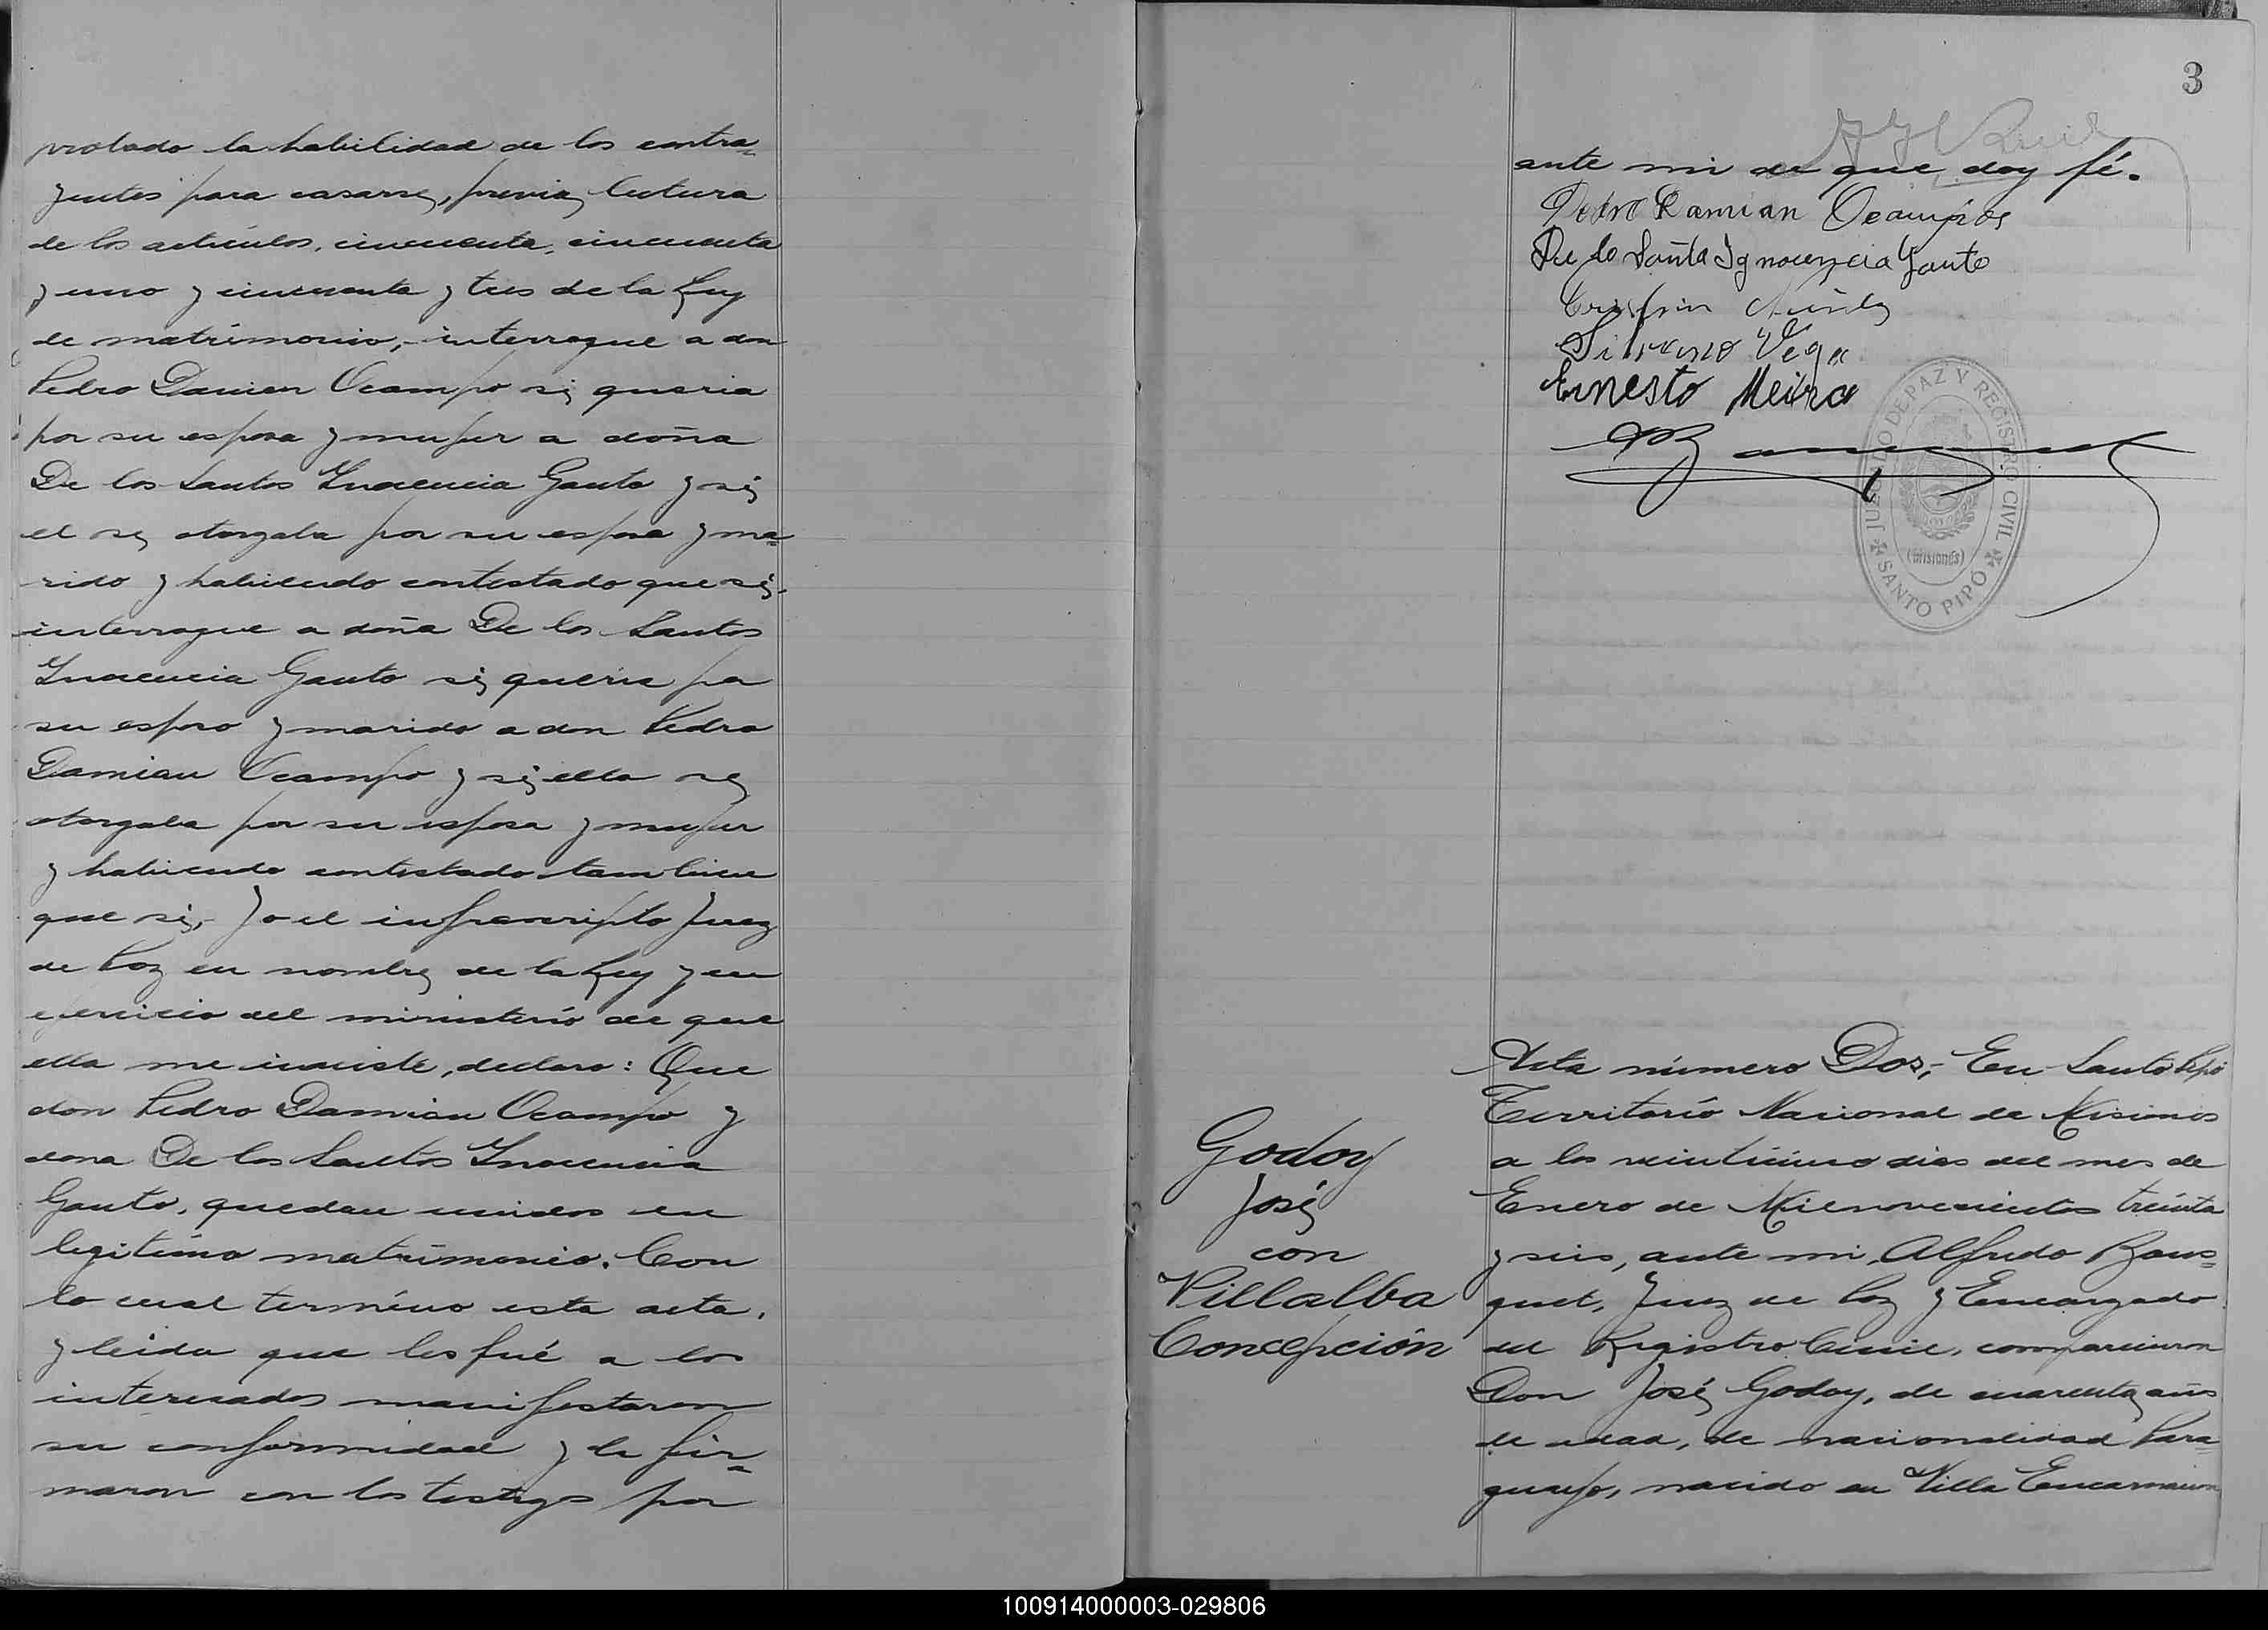 probado la habilidad de los contra=
yentes para casarse, previa lectura
de los articulos, cincuenta, cincuenta
y uno y cincuenta y tres de la Ley
de matrimonio, interrogue a don
Pedro Damian Ocampo si queria
por su esposa y mujer a doña
De los Santos Inocencia Gauto y si
el se otorgaba por su esposo y ma=
rido y habiendo contestado que si,
interrogue a doña De los Santos
Inocencia Gauto si quería por
su esposo y marido a don Pedro
Damian Ocampo y si ella se
otorgaba por su esposa y mujer
y habiendo contestado tambien
que si, Yo el infrascripto Juez
de Paz en nombre de la Ley y en
ejercicio del ministerio de que
ella me inviste, declaro: Que
don Pedro Damian Ocampo y
dona De los Santos Inocencia
Gauto, quedan unidos en
legitimo matrimonio. Con
lo cual termino esta acta,
y leida que les fué a los
interesados manifestaron
su conformidad y la fir=
maron con los testigos por
3
ante mi de que doy fé.
Pedro Damian Ocampos
De lo Santo Ignocencia Gauto
Silverio Vega
Ernesto Meira
JUZGADO DE PAZ Y REGISTRO CIVIL
(Misiones)
SANTO PIPÓ
Godoy
José
con
Villalba
Concepción
Acta número Dos; En Santo Pipó
Territorio Nacional de Misiones
a los veinticinco dias del mes de
Enero de Mil novecientos treinta
y seis, ante mi, Alfredo Bous=
quet, Juez de Paz y Encargado
del Registro Civil, comparecieron
Don José Godoy, de cuarenta años
de edad, de nacionalidad Para
guayo, nacido en Villa Encarnacion
100914000003-029806